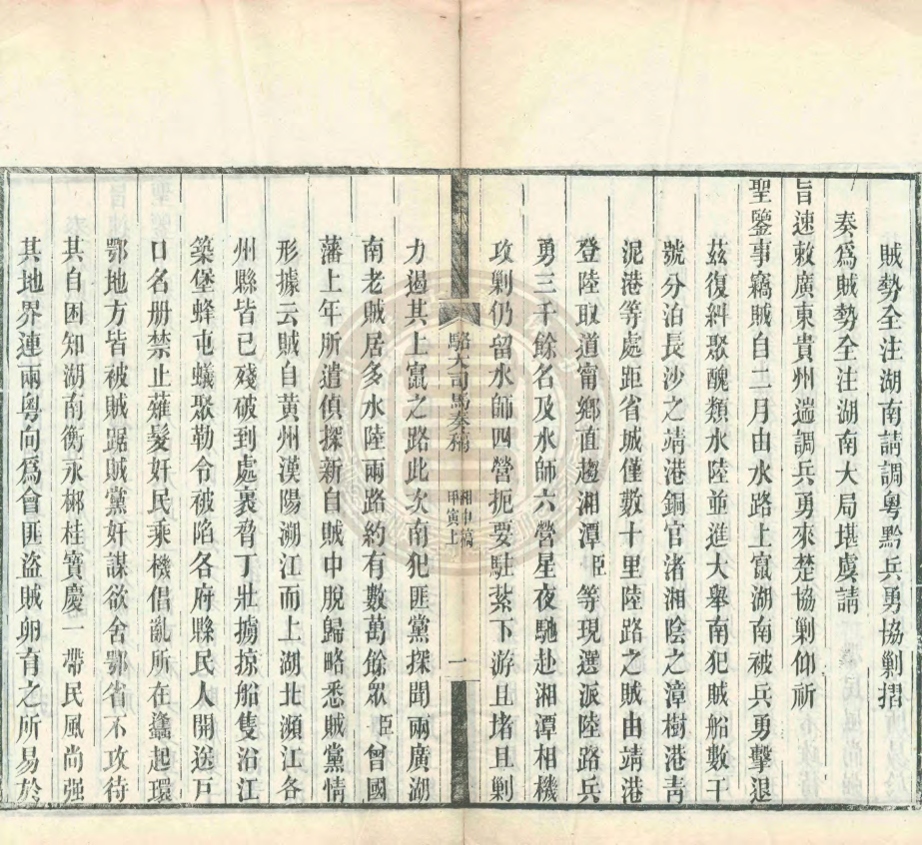 賊勢全注湖南請調粤黔兵勇協剿摺
奏爲賊勢全注湖南大局堪虞請
旨速敕廣東貴州遄調兵勇來楚協剿仰祈
聖鑒事竊賊自二月由水路上竄湖南被兵勇擊退
茲復糾聚醜類水陸並進大舉南犯賊船數千
號分泊長沙之靖港銅官渚湘陰之漳樹港青
泥港等處距省城僅數十里陸路之賊由靖港
登陸取道甯鄉直趨湘潭臣等現選派陸路兵
勇三千餘名及水師六營星夜馳赴湘潭相機
攻剿仍留水師四營扼要駐紮下游且堵且剿
駱大司馬奏稿
湘中稿
甲寅上
一
力遏其上竄之路此次南犯匪黨探聞兩廣湖
南老賊居多水陸兩路約有數萬餘眾臣曾國
藩上年所遣偵探新自賊中脫歸略悉賊黨情
形據云賊自黄州漢陽溯江而上湖北瀕江各
州縣皆已殘破到處裹脅丁壯擄掠船隻沿江
築堡蜂屯蟻聚勒令被陷各府縣民人開送戸
口名册禁止薙髮奸民乘機倡亂所在蠭起環
鄂地方皆被賊踞賊黨奸謀欲舍鄂省不攻待
其自困知湖南衡永郴桂寶慶一帶民風尚强
其地界連兩粤向爲會匪盜賊卵育之所易於